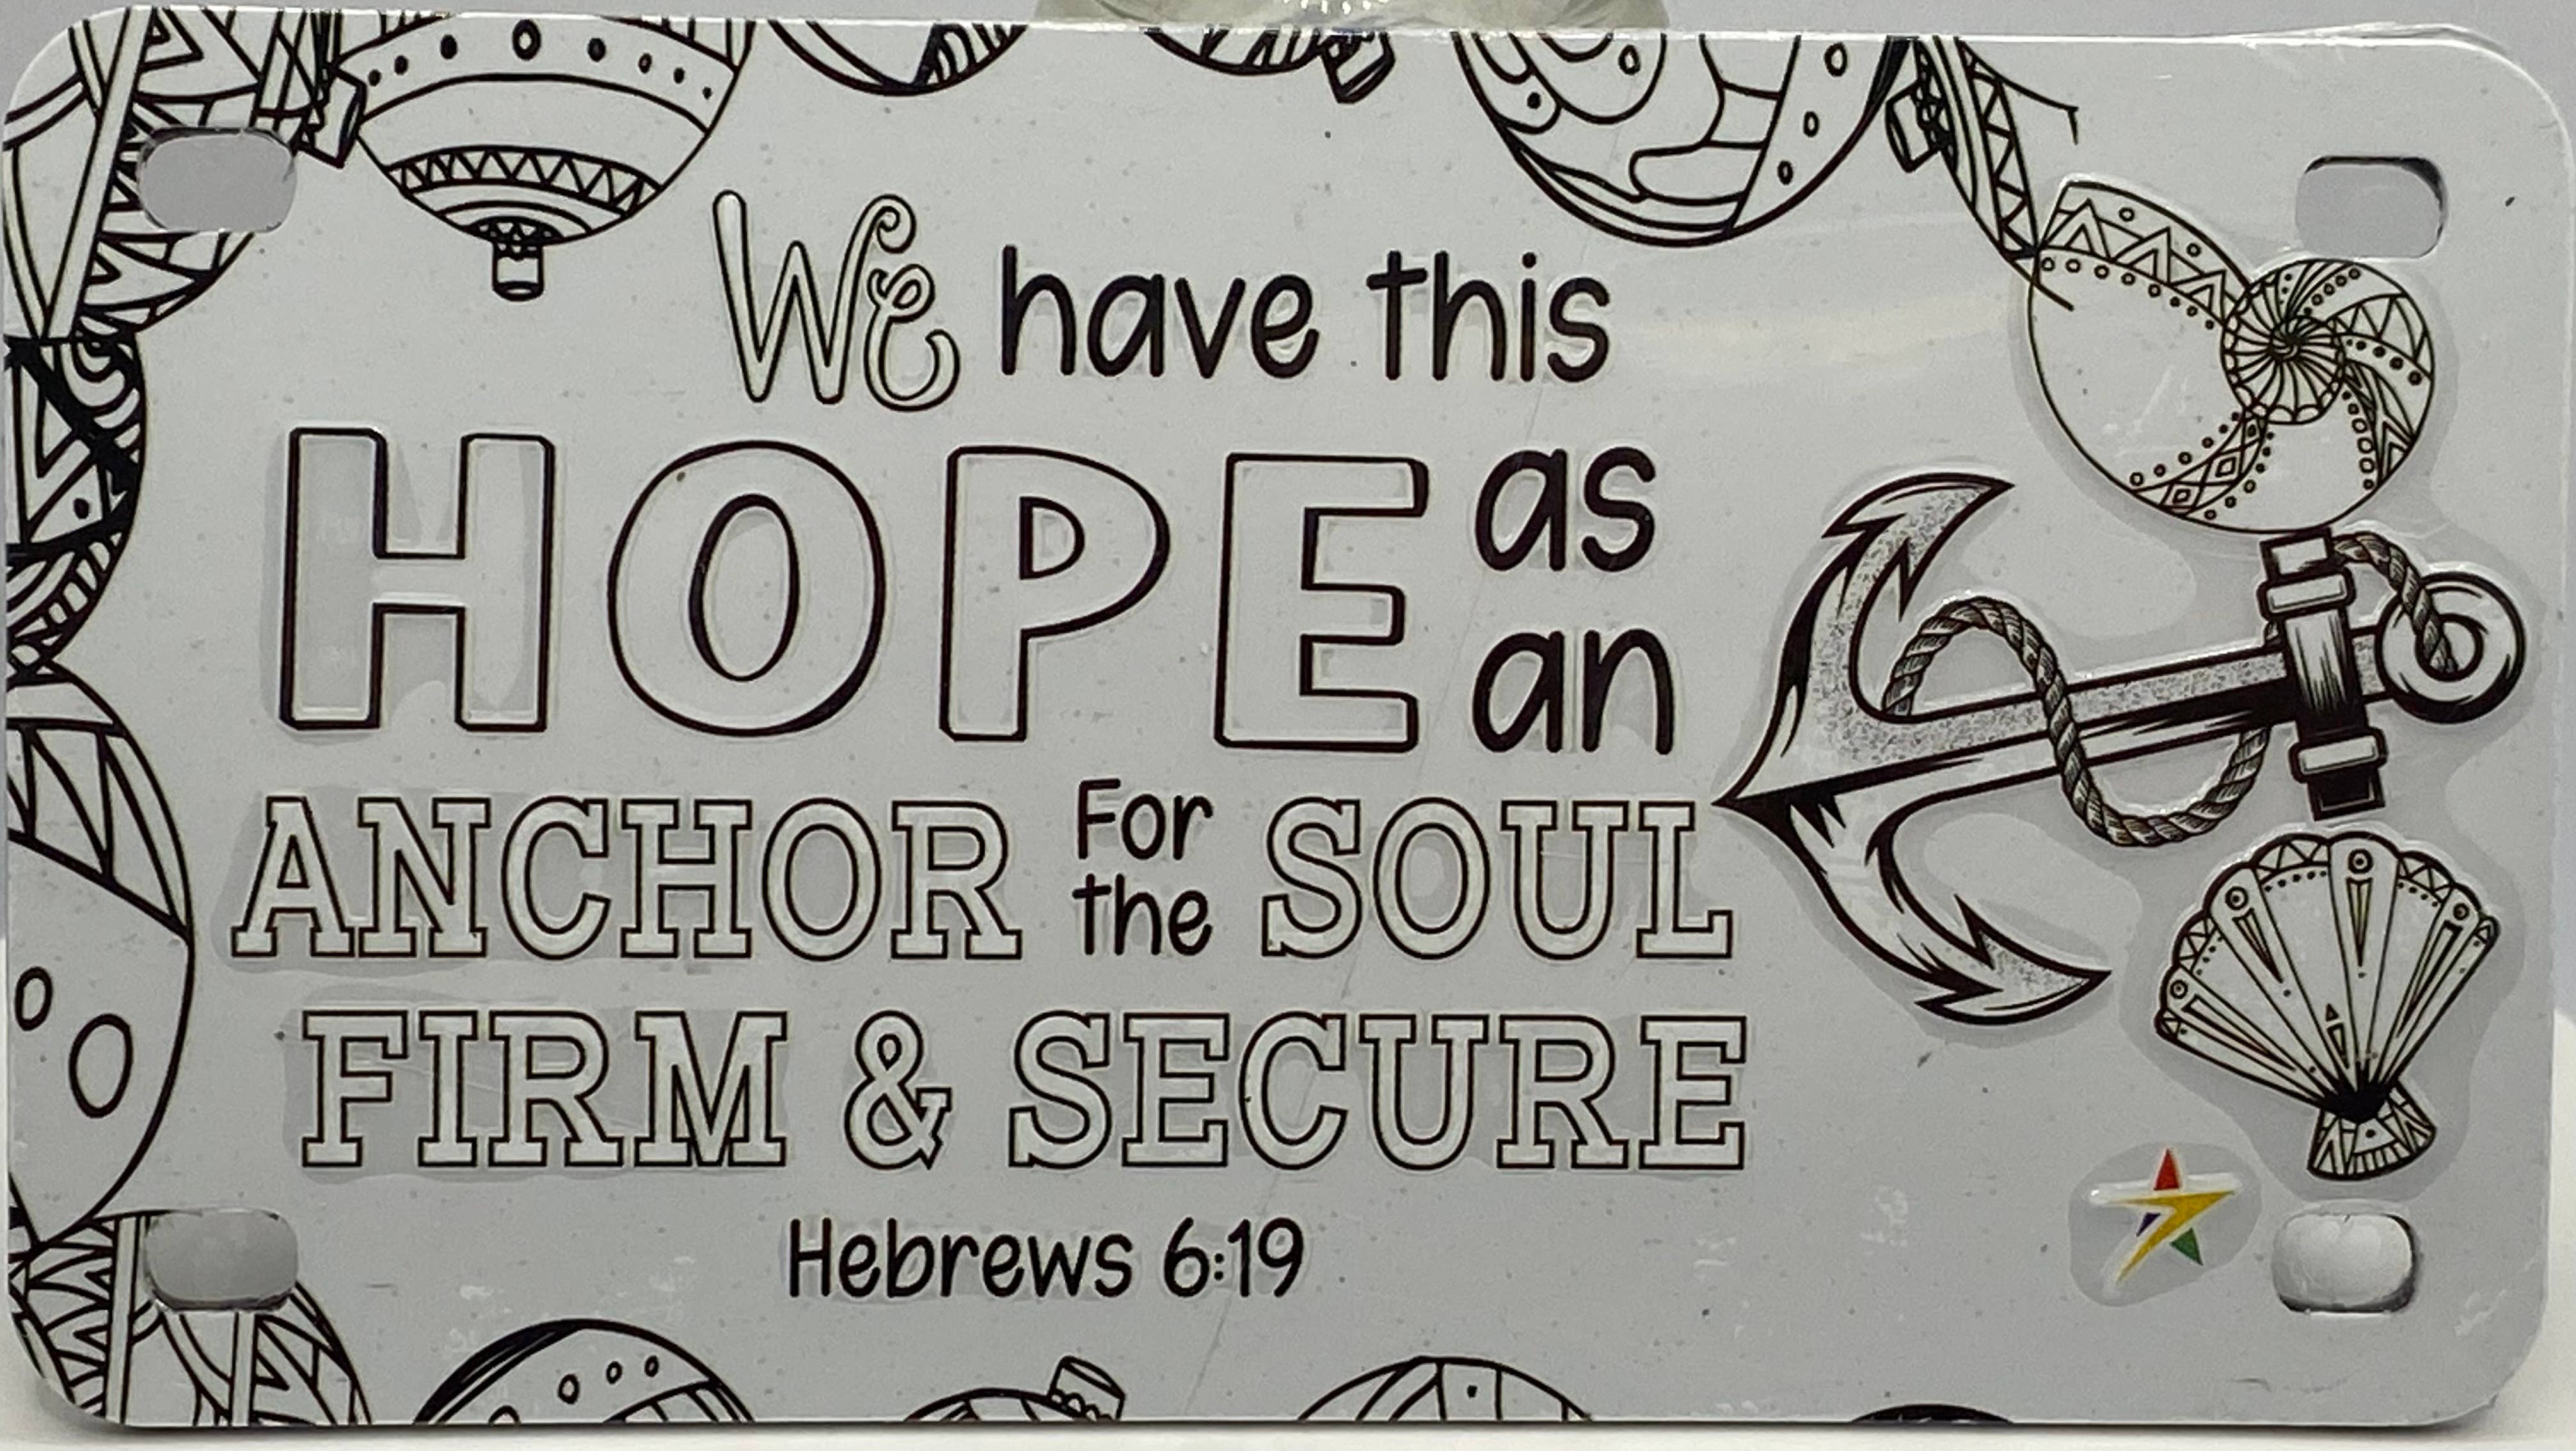 We have this
HOPE as
an
ANCHOR For the SOUL
FIRM & SECURE
Hebrews 6:19